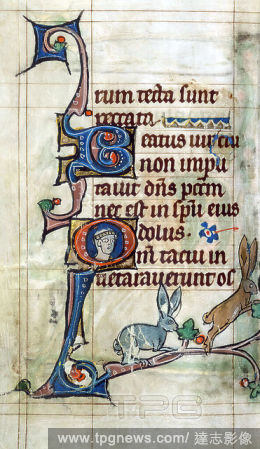 rum tecta sunt
peccata
Beatus uir cui
non impu
tauit dñs pccm̄
nec est in sp̄u eius
dolus.
Qm̄ tacui in
ueterauerunt os
TPG
www.tpgnews.com/ 達志影像